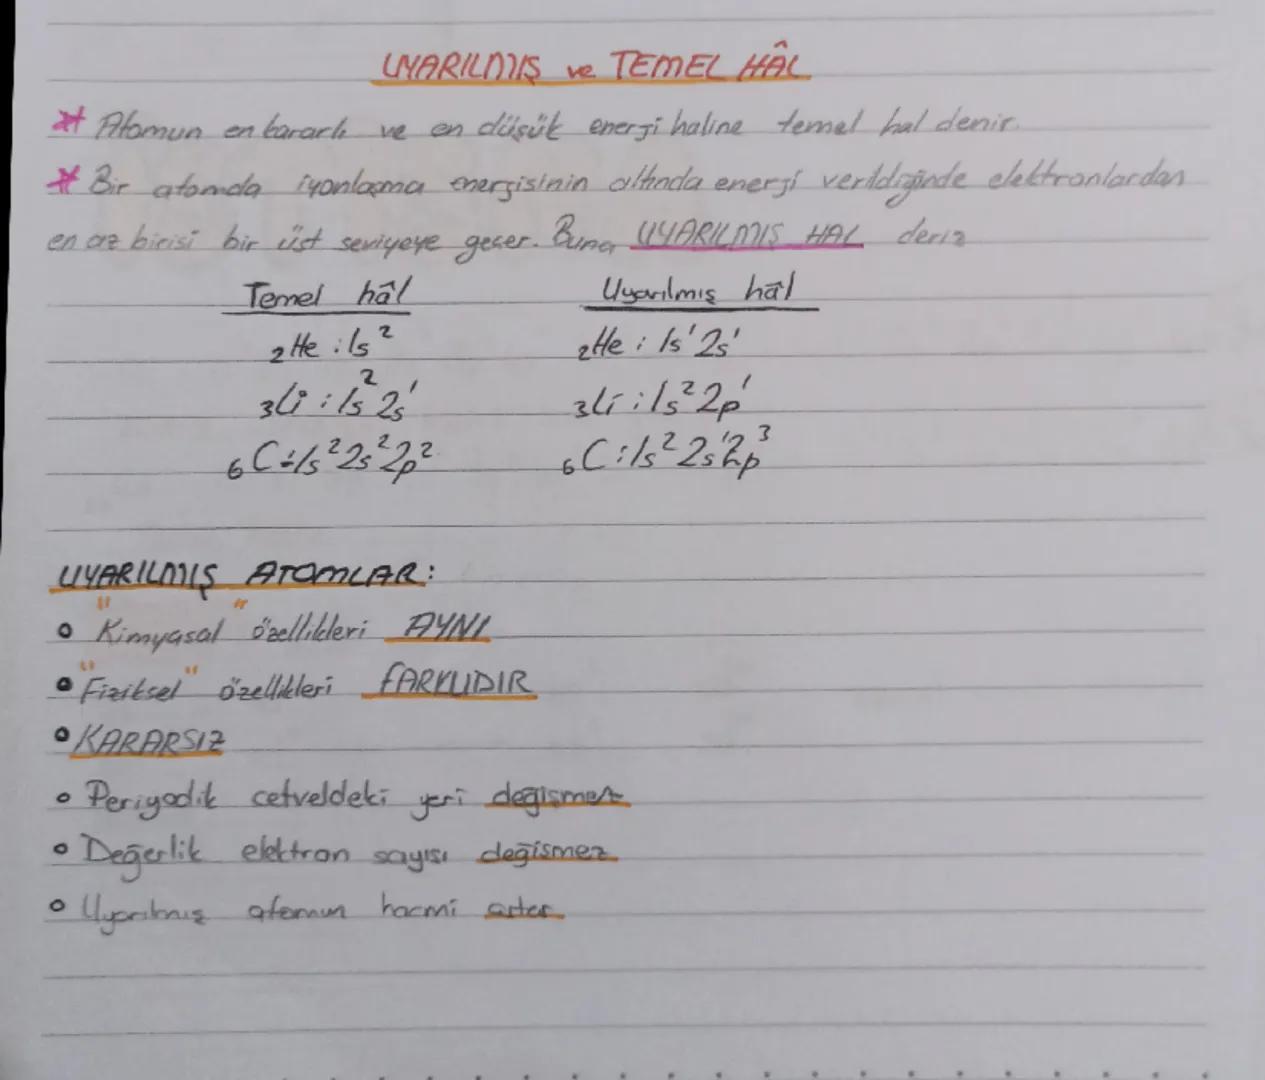 UYARILMIŞ ve TEMEL HÂL
* Atomun en kararlı ve en düşük enerji haline temel hal denir.
* Bir atomda iyonlaşma enerjisinin altında enerji verildiğinde elektronlardan
en az birisi bir üst seviyeye geçer. Buna UYARILMIŞ HAL deriz
Temel hâl Uyarılmış hâl
₂He : 1s² ₂He : 1s¹2s¹
₃Li : 1s²2s¹ ₃Li : 1s²2p¹
₆C : 1s²2s²2p² ₆C : 1s²2s¹2p³
UYARILMIŞ ATOMLAR:
• "Kimyasal" özellikleri AYNI
• "Fiziksel" özellikleri FARKLIDIR
• KARARSIZ
• Periyodik cetveldeki yeri değişmez
• Değerlik elektron sayısı değişmez
• Uyarılmış atomun hacmi artar